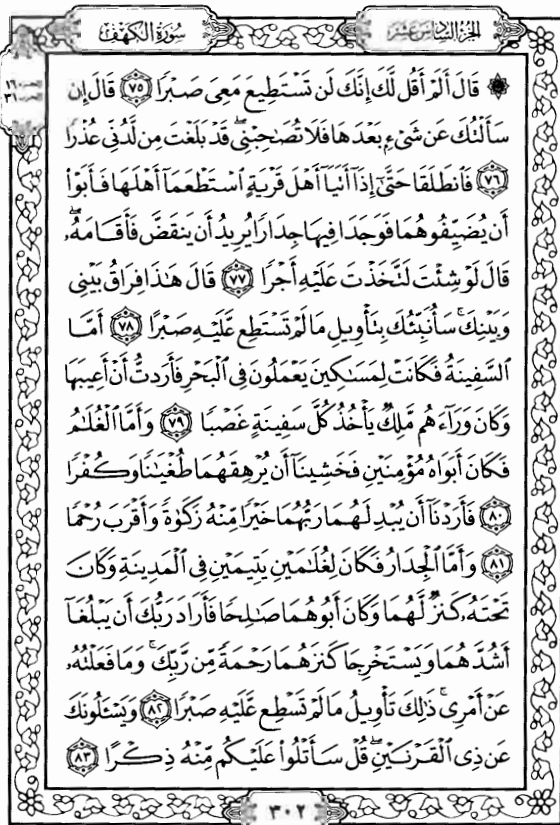 سُورَةُ الكَهْفِ
الجُزْءُ السَّادِسَ عَشَرَ
الحزب ١٦
الحزب ٣١
۞ قَالَ أَلَمْ أَقُل لَّكَ إِنَّكَ لَن تَسْتَطِيعَ مَعِىَ صَبْرًا ٧٥ قَالَ إِن
سَأَلْتُكَ عَن شَىْءٍۭ بَعْدَهَا فَلَا تُصَٰحِبْنِى ۖ قَدْ بَلَغْتَ مِن لَّدُنِّى عُذْرًا
٧٦ فَٱنطَلَقَا حَتَّىٰٓ إِذَآ أَتَيَآ أَهْلَ قَرْيَةٍ ٱسْتَطْعَمَآ أَهْلَهَا فَأَبَوْا۟
أَن يُضَيِّفُوهُمَا فَوَجَدَا فِيهَا جِدَارًا يُرِيدُ أَن يَنقَضَّ فَأَقَامَهُۥ ۖ
قَالَ لَوْ شِئْتَ لَتَّخَذْتَ عَلَيْهِ أَجْرًا ٧٧ قَالَ هَٰذَا فِرَاقُ بَيْنِى
وَبَيْنِكَ ۚ سَأُنَبِّئُكَ بِتَأْوِيلِ مَا لَمْ تَسْتَطِع عَّلَيْهِ صَبْرًا ٧٨ أَمَّا
ٱلسَّفِينَةُ فَكَانَتْ لِمَسَٰكِينَ يَعْمَلُونَ فِى ٱلْبَحْرِ فَأَرَدتُّ أَنْ أَعِيبَهَا
وَكَانَ وَرَآءَهُم مَّلِكٌ يَأْخُذُ كُلَّ سَفِينَةٍ غَصْبًا ٧٩ وَأَمَّا ٱلْغُلَٰمُ
فَكَانَ أَبَوَاهُ مُؤْمِنَيْنِ فَخَشِينَآ أَن يُرْهِقَهُمَا طُغْيَٰنًا وَكُفْرًا
٨٠ فَأَرَدْنَآ أَن يُبْدِلَهُمَا رَبُّهُمَا خَيْرًا مِّنْهُ زَكَوٰةً وَأَقْرَبَ رُحْمًا
٨١ وَأَمَّا ٱلْجِدَارُ فَكَانَ لِغُلَٰمَيْنِ يَتِيمَيْنِ فِى ٱلْمَدِينَةِ وَكَانَ
تَحْتَهُۥ كَنزٌ لَّهُمَا وَكَانَ أَبُوهُمَا صَٰلِحًا فَأَرَادَ رَبُّكَ أَن يَبْلُغَآ
أَشُدَّهُمَا وَيَسْتَخْرِجَا كَنزَهُمَا رَحْمَةً مِّن رَّبِّكَ ۚ وَمَا فَعَلْتُهُۥ
عَنْ أَمْرِى ۚ ذَٰلِكَ تَأْوِيلُ مَا لَمْ تَسْطِع عَّلَيْهِ صَبْرًا ٨٢ وَيَسْـَٔلُونَكَ
عَن ذِى ٱلْقَرْنَيْنِ ۖ قُلْ سَأَتْلُوا۟ عَلَيْكُم مِّنْهُ ذِكْرًا ٨٣
٣٠٢